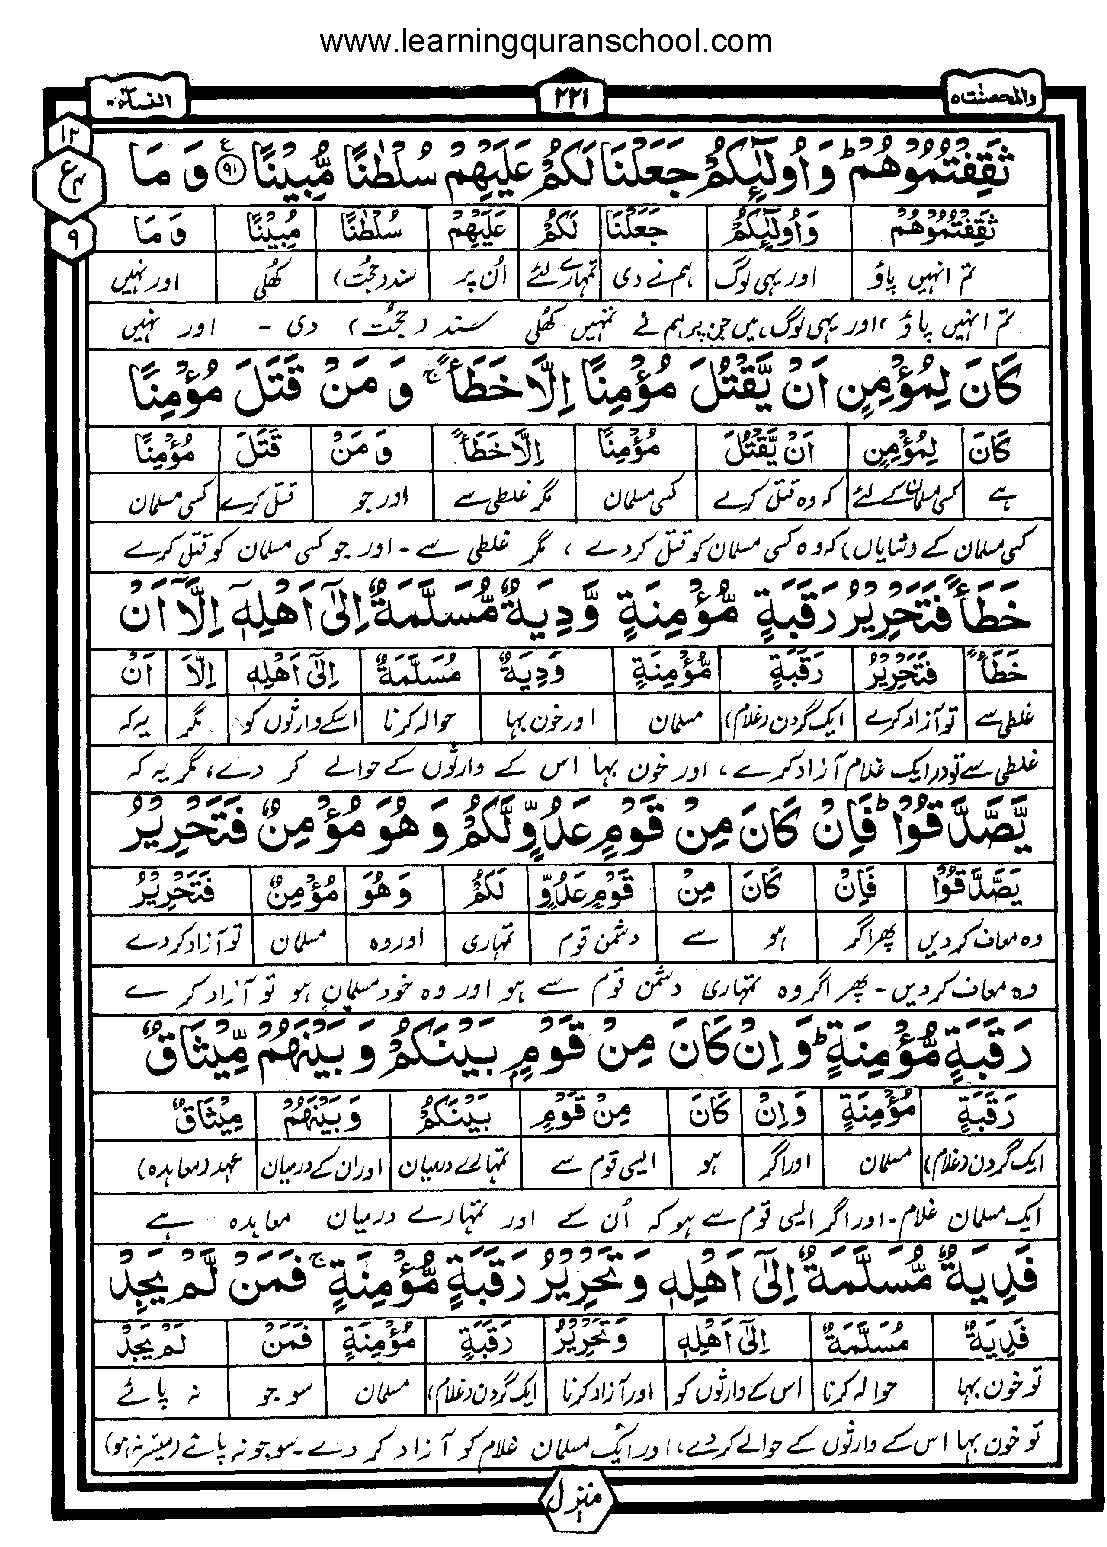 www.learningquranschool.com
والمحصنت ۵
۲۲۱
النسآء ۴
۱۲
ع
۹
ثَقِفْتُمُوْهُمْ ؕ وَ اُولٰٓئِكُمْ جَعَلْنَا لَكُمْ عَلَيْهِمْ سُلْطٰنًا مُّبِيْنًا ﴿۹۱﴾ وَ مَا
ثَقِفْتُمُوْهُمْ وَاُولٰٓئِكُمْ جَعَلْنَا لَكُمْ عَلَيْهِمْ سُلْطٰنًا مُبِيْنًا وَ مَا
تم انہیں پاؤ اور یہی لوگ ہم نے دی تمہارے لئے اُن پر سند (حجت) کھلی اور نہیں
تم انہیں پاؤ، اور یہی لوگ ہیں جن پر ہم نے تمہیں کھلی سند (حجت) دی - اور نہیں
كَانَ لِمُؤْمِنٍ اَنْ يَّقْتُلَ مُؤْمِنًا اِلَّا خَطَـًٔا ۚ وَ مَنْ قَتَلَ مُؤْمِنًا
كَانَ لِمُؤْمِنٍ اَنْ يَّقْتُلَ مُؤْمِنًا اِلَّا خَطَـًٔا وَ مَنْ قَتَلَ مُؤْمِنًا
ہے کسی مسلمان کے لئے کہ وہ قتل کرے کسی مسلمان مگر غلطی سے اور جو قتل کرے کسی مسلمان
کسی مسلمان کے (شایاں) کہ وہ کسی مسلمان کو قتل کر دے، مگر غلطی سے - اور جو کسی مسلمان کو قتل کرے
خَطَـًٔا فَتَحْرِيْرُ رَقَبَةٍ مُّؤْمِنَةٍ وَّ دِيَةٌ مُّسَلَّمَةٌ اِلٰٓى اَهْلِهٖٓ اِلَّاۤ اَنْ
خَطَـًٔا فَتَحْرِيْرُ رَقَبَةٍ مُّؤْمِنَةٍ وَدِيَةٌ مُسَلَّمَةٌ اِلٰٓى اَهْلِهٖ اِلَّا اَنْ
غلطی سے تو آزاد کرے ایک گردن (غلام) مسلمان اور خون بہا حوالہ کرنا اسکے وارثوں کو مگر یہ کہ
غلطی سے تو (وہ) ایک غلام آزاد کرے، اور خون بہا اس کے وارثوں کے حوالے کر دے، مگر یہ کہ
يَّصَّدَّقُوْا ؕ فَاِنْ كَانَ مِنْ قَوْمٍ عَدُوٍّ لَّكُمْ وَ هُوَ مُؤْمِنٌ فَتَحْرِيْرُ
يَصَّدَّقُوْا فَاِنْ كَانَ مِنْ قَوْمٍ عَدُوٍّ لَكُمْ وَ هُوَ مُؤْمِنٌ فَتَحْرِيْرُ
وہ معاف کر دیں پھر اگر ہو سے دشمن قوم تمہاری اور وہ مسلمان تو آزاد کر دے
وہ معاف کر دیں - پھر اگر وہ تمہاری دشمن قوم سے ہو اور وہ خود مسلمان ہو تو آزاد کرے
رَقَبَةٍ مُّؤْمِنَةٍ ؕ وَ اِنْ كَانَ مِنْ قَوْمٍۭ بَيْنَكُمْ وَ بَيْنَهُمْ مِّيْثَاقٌ
رَقَبَةٍ مُّؤْمِنَةٍ وَاِنْ كَانَ مِنْ قَوْمٍ بَيْنَكُمْ وَ بَيْنَهُمْ مِيْثَاقٌ
ایک گردن (غلام) مسلمان اور اگر ہو ایسی قوم سے تمہارے درمیان اور ان کے درمیان عہد (معاہدہ)
ایک مسلمان غلام - اور اگر ایسی قوم سے ہو کہ اُن کے اور تمہارے درمیان معاہدہ ہے
فَدِيَةٌ مُّسَلَّمَةٌ اِلٰٓى اَهْلِهٖ وَ تَحْرِيْرُ رَقَبَةٍ مُّؤْمِنَةٍ ۚ فَمَنْ لَّمْ يَجِدْ
فَدِيَةٌ مُسَلَّمَةٌ اِلٰٓى اَهْلِهٖ وَ تَحْرِيْرُ رَقَبَةٍ مُؤْمِنَةٍ فَمَنْ لَمْ يَجِدْ
تو خون بہا حوالہ کرنا اس کے وارثوں کو اور آزاد کرنا ایک گردن (غلام) مسلمان سو جو نہ پائے
تو خون بہا اس کے وارثوں کے حوالے کر دے، اور ایک مسلمان غلام کو آزاد کر دے - سو جو نہ پائے (میسر نہ ہو)
منزل ۱